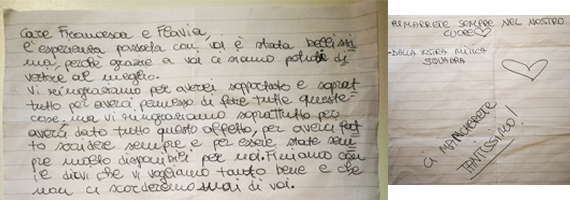 Care Francesca e Flavia,
l'esperienza passata con voi è stata bellissi
ma, perché grazie a voi ci siamo potute di
vertire al meglio.
Vi ringraziamo per averci sopportato e soprat
tutto per averci permesso di fare tutte queste
cose. ma vi ringraziamo soprattutto per
averci dato tutto questo affetto, per averci fat
to sorridere sempre e per essere state sem
pre molto disponibili per noi. Finiamo con
le dirvi che vi vogliamo tanto bene e che
non ci scorderemo mai di voi.
RIMARRETE SEMPRE NEL NOSTRO
CUORE
-DALLA VOSTRA MITICA
SQUADRA
CI MANCHERETE
TANTISSIMO!